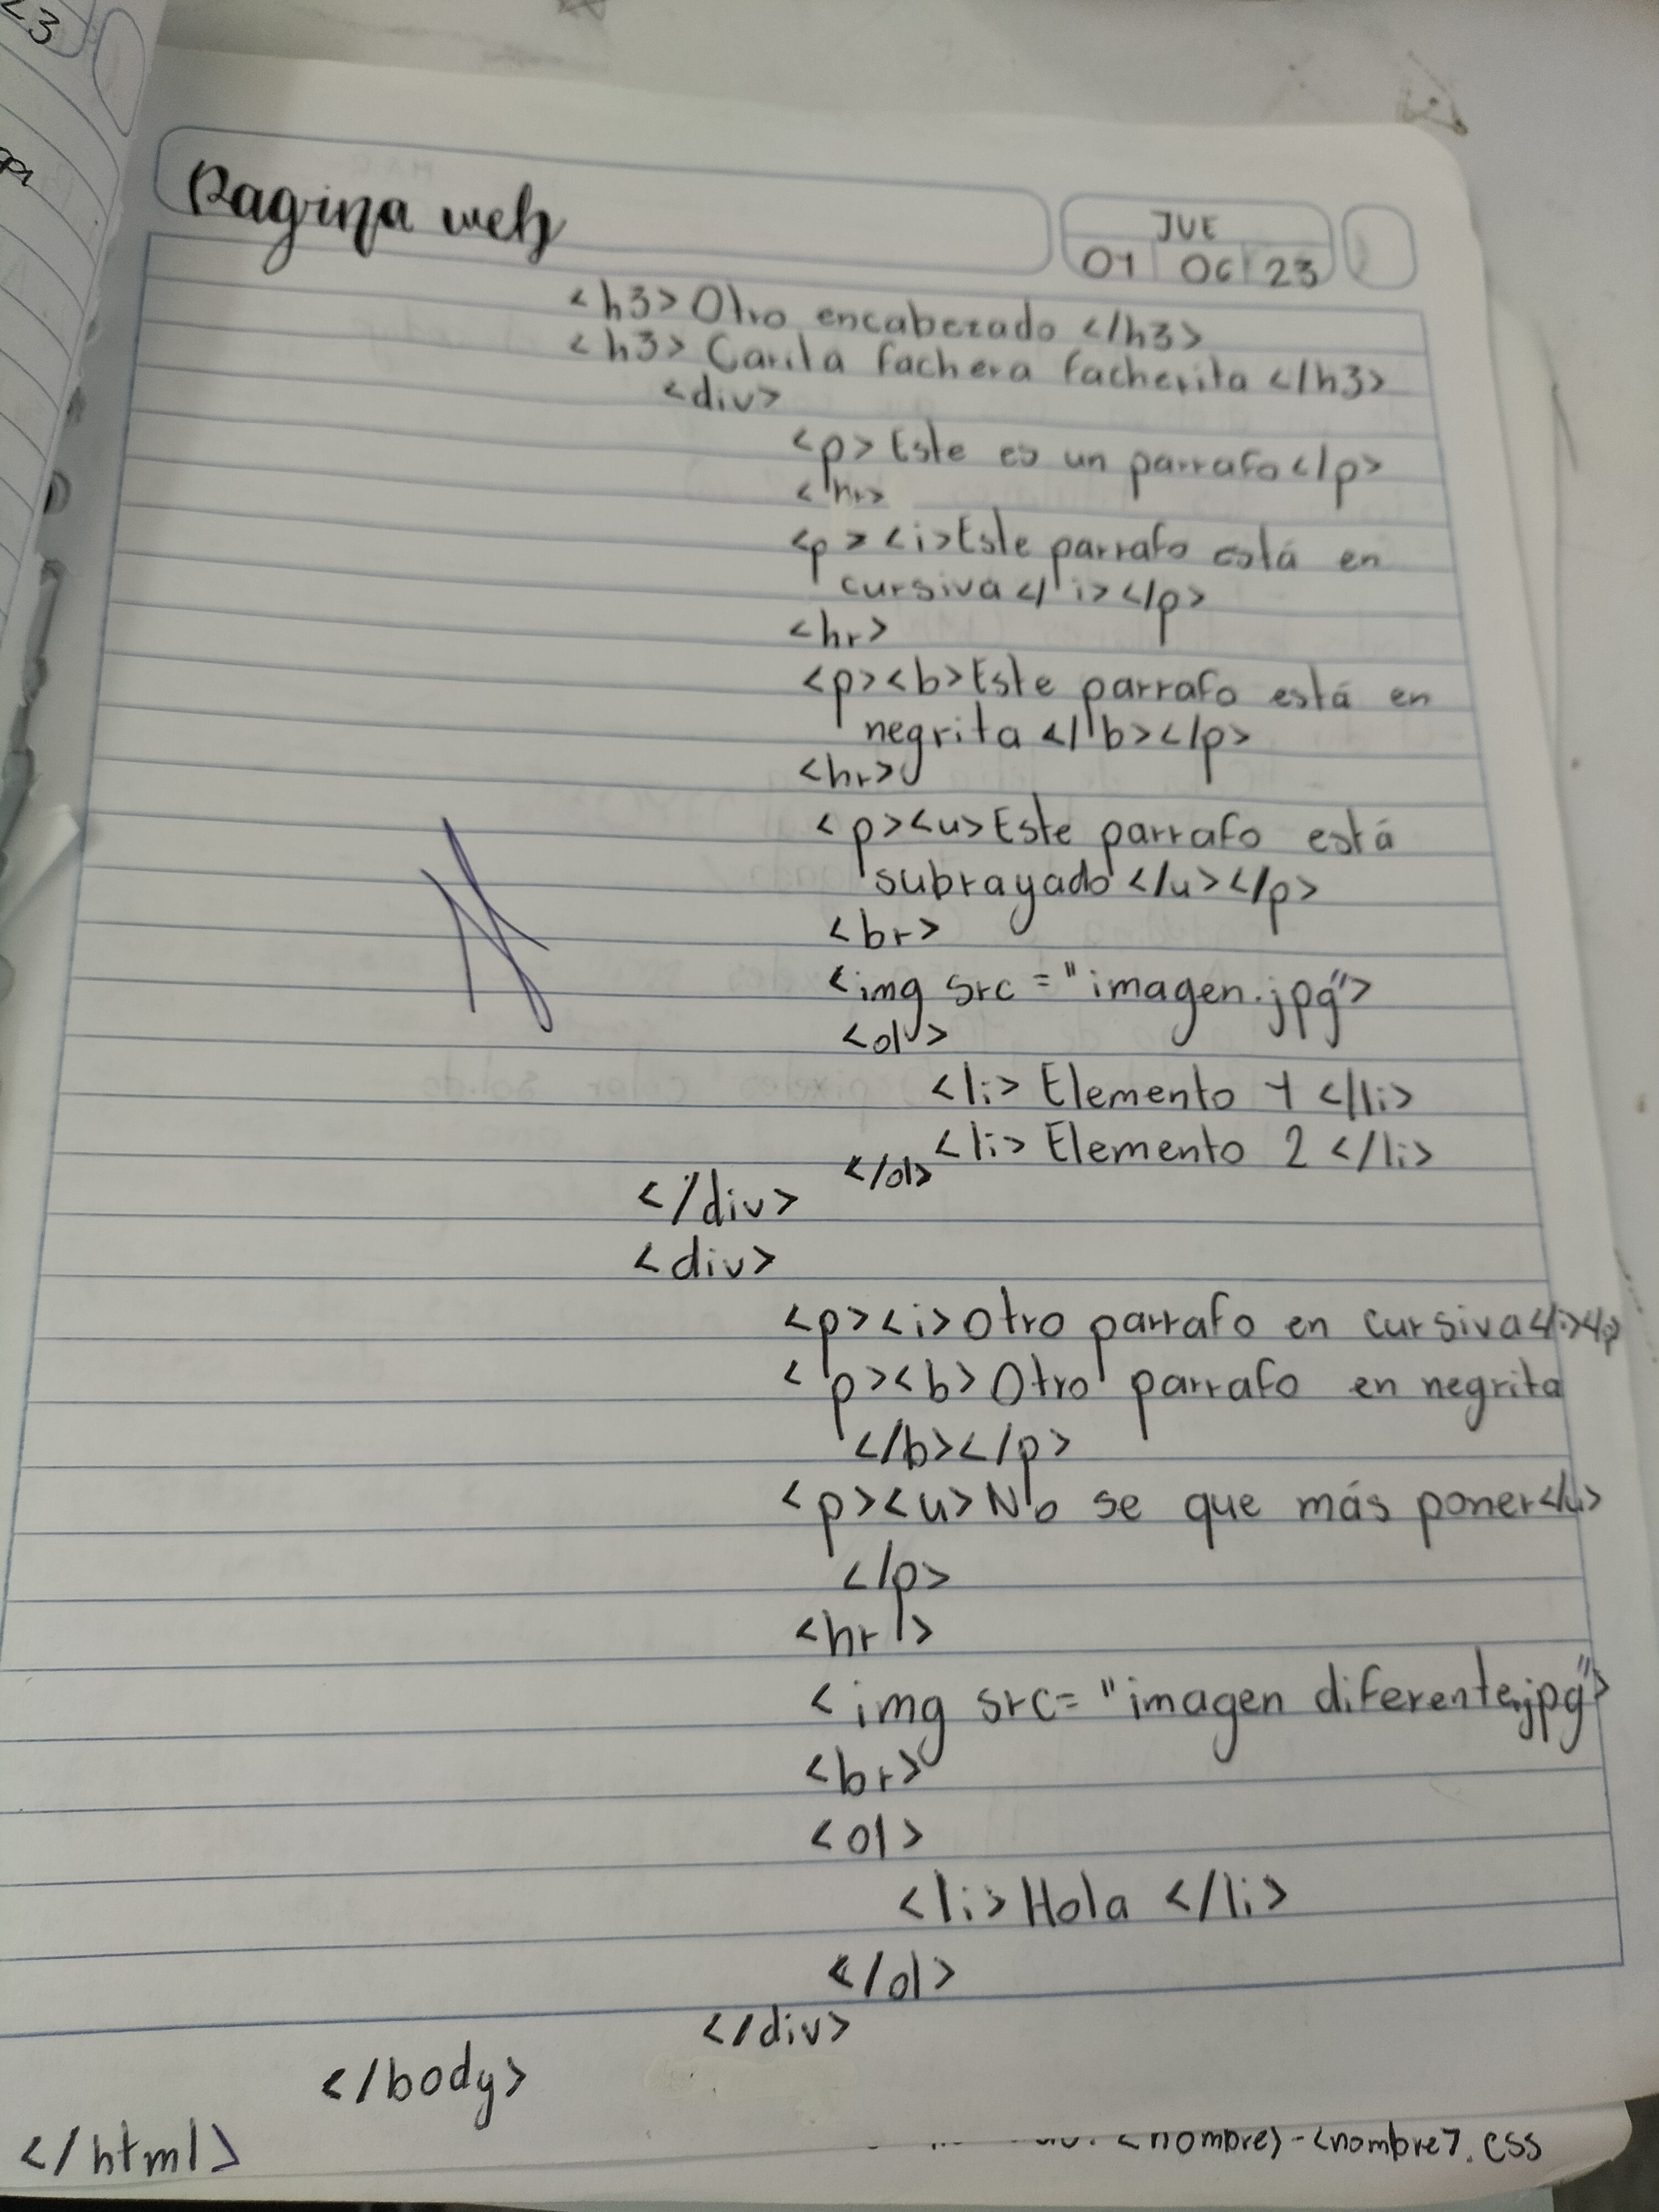 23
Pagina web
JUE
01 06 23
<h3> Otro encabezado </h3>
<h3> Carita fachera facherita </h3>
<div>
<p> Este es un parrafo </p>
<hr>
<p><i>Este parrafo está en
cursiva</i></p>
<hr>
<p><b>Este parrafo está en
negrita </b></p>
<hr>
<p><u>Este parrafo está
subrayado </u></p>
<br>
<img src = "imagen.jpg">
<ol>
<li> Elemento 1 </li>
<li> Elemento 2 </li>
</ol>
</div>
<div>
<p><i>Otro parrafo en cursiva</i></p
<p><b> Otro parrafo en negrita
</b></p>
<p><u>No se que más poner</u>
</p>
<hr>
<img src= "imagen diferente.jpg">
<br>
<ol>
<li> Hola </li>
</ol>
</div>
</body>
</html>
<nombre>-<nombre>.css